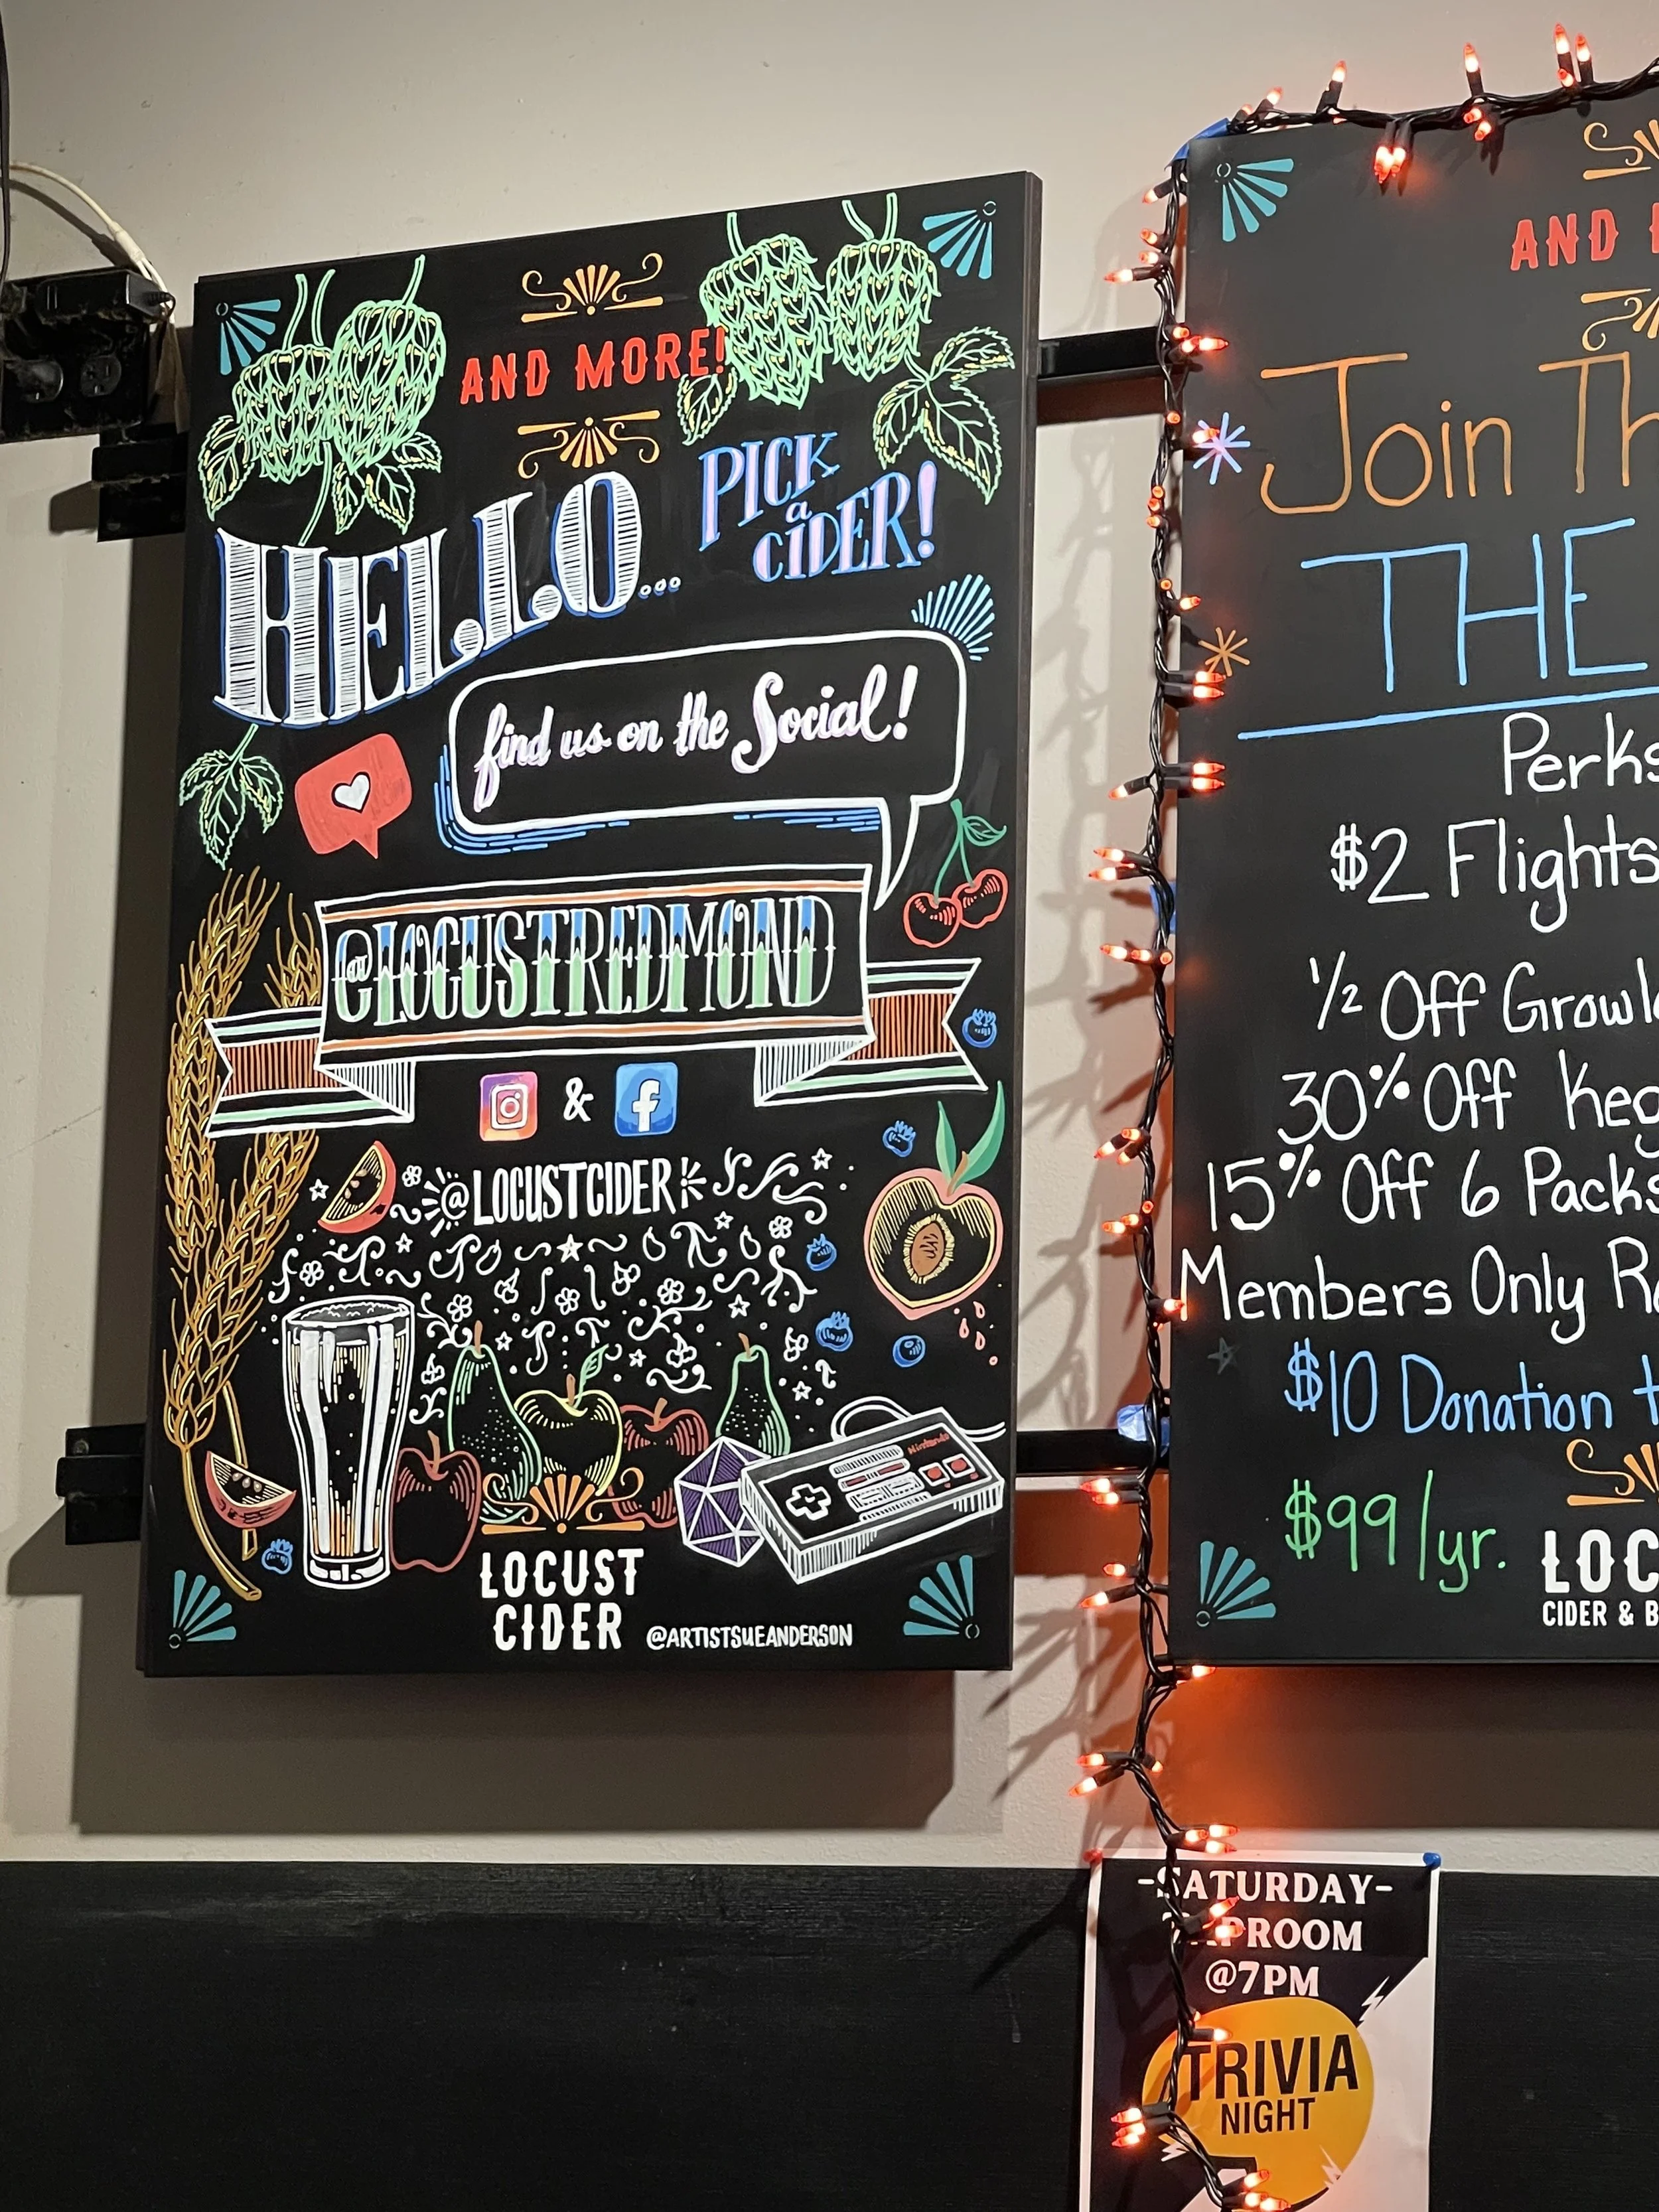 AND MORE!
HELLO...
PICK
a
CIDER!
find us on the Social!
@LOCUSTREDMOND
&
@LOCUSTCIDER
Nintendo
LOCUST
CIDER
@ARTISTSUEANDERSON
AND
Join
THE
Perks
$2 Flights
1/2 Off
30% Off
15% Off 6 Packs
Members Only
$10 Donation
$99/yr.
CIDER &
-SATURDAY-
TAPROOM
@7PM
TRIVIA
NIGHT